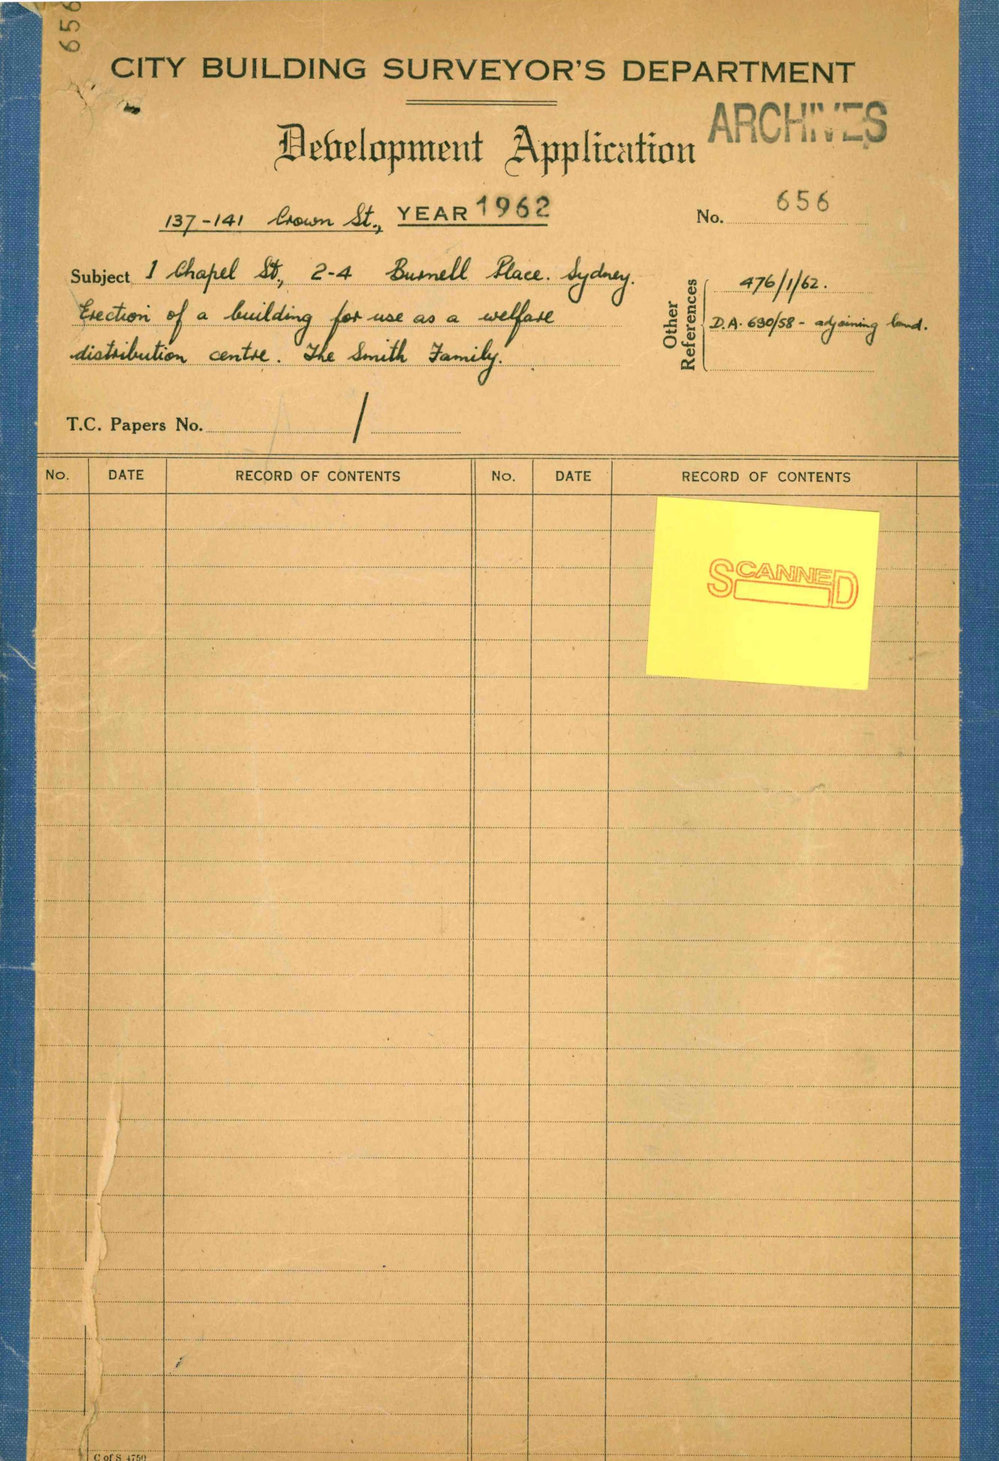 656
CITY BUILDING SURVEYOR'S DEPARTMENT
ARCHIVES
Development Application
137-141 Crown St., YEAR 1962
No. 656
Subject 1 Chapel St., 2-4 Burnell Place. Sydney.
Erection of a building for use as a welfare
distribution centre. The Smith Family.
Other References
476/1/62.
D.A. 690/58 - adjoining land.
T.C. Papers No. /
No. DATE RECORD OF CONTENTS No. DATE RECORD OF CONTENTS
SCANNED
C of S 4750